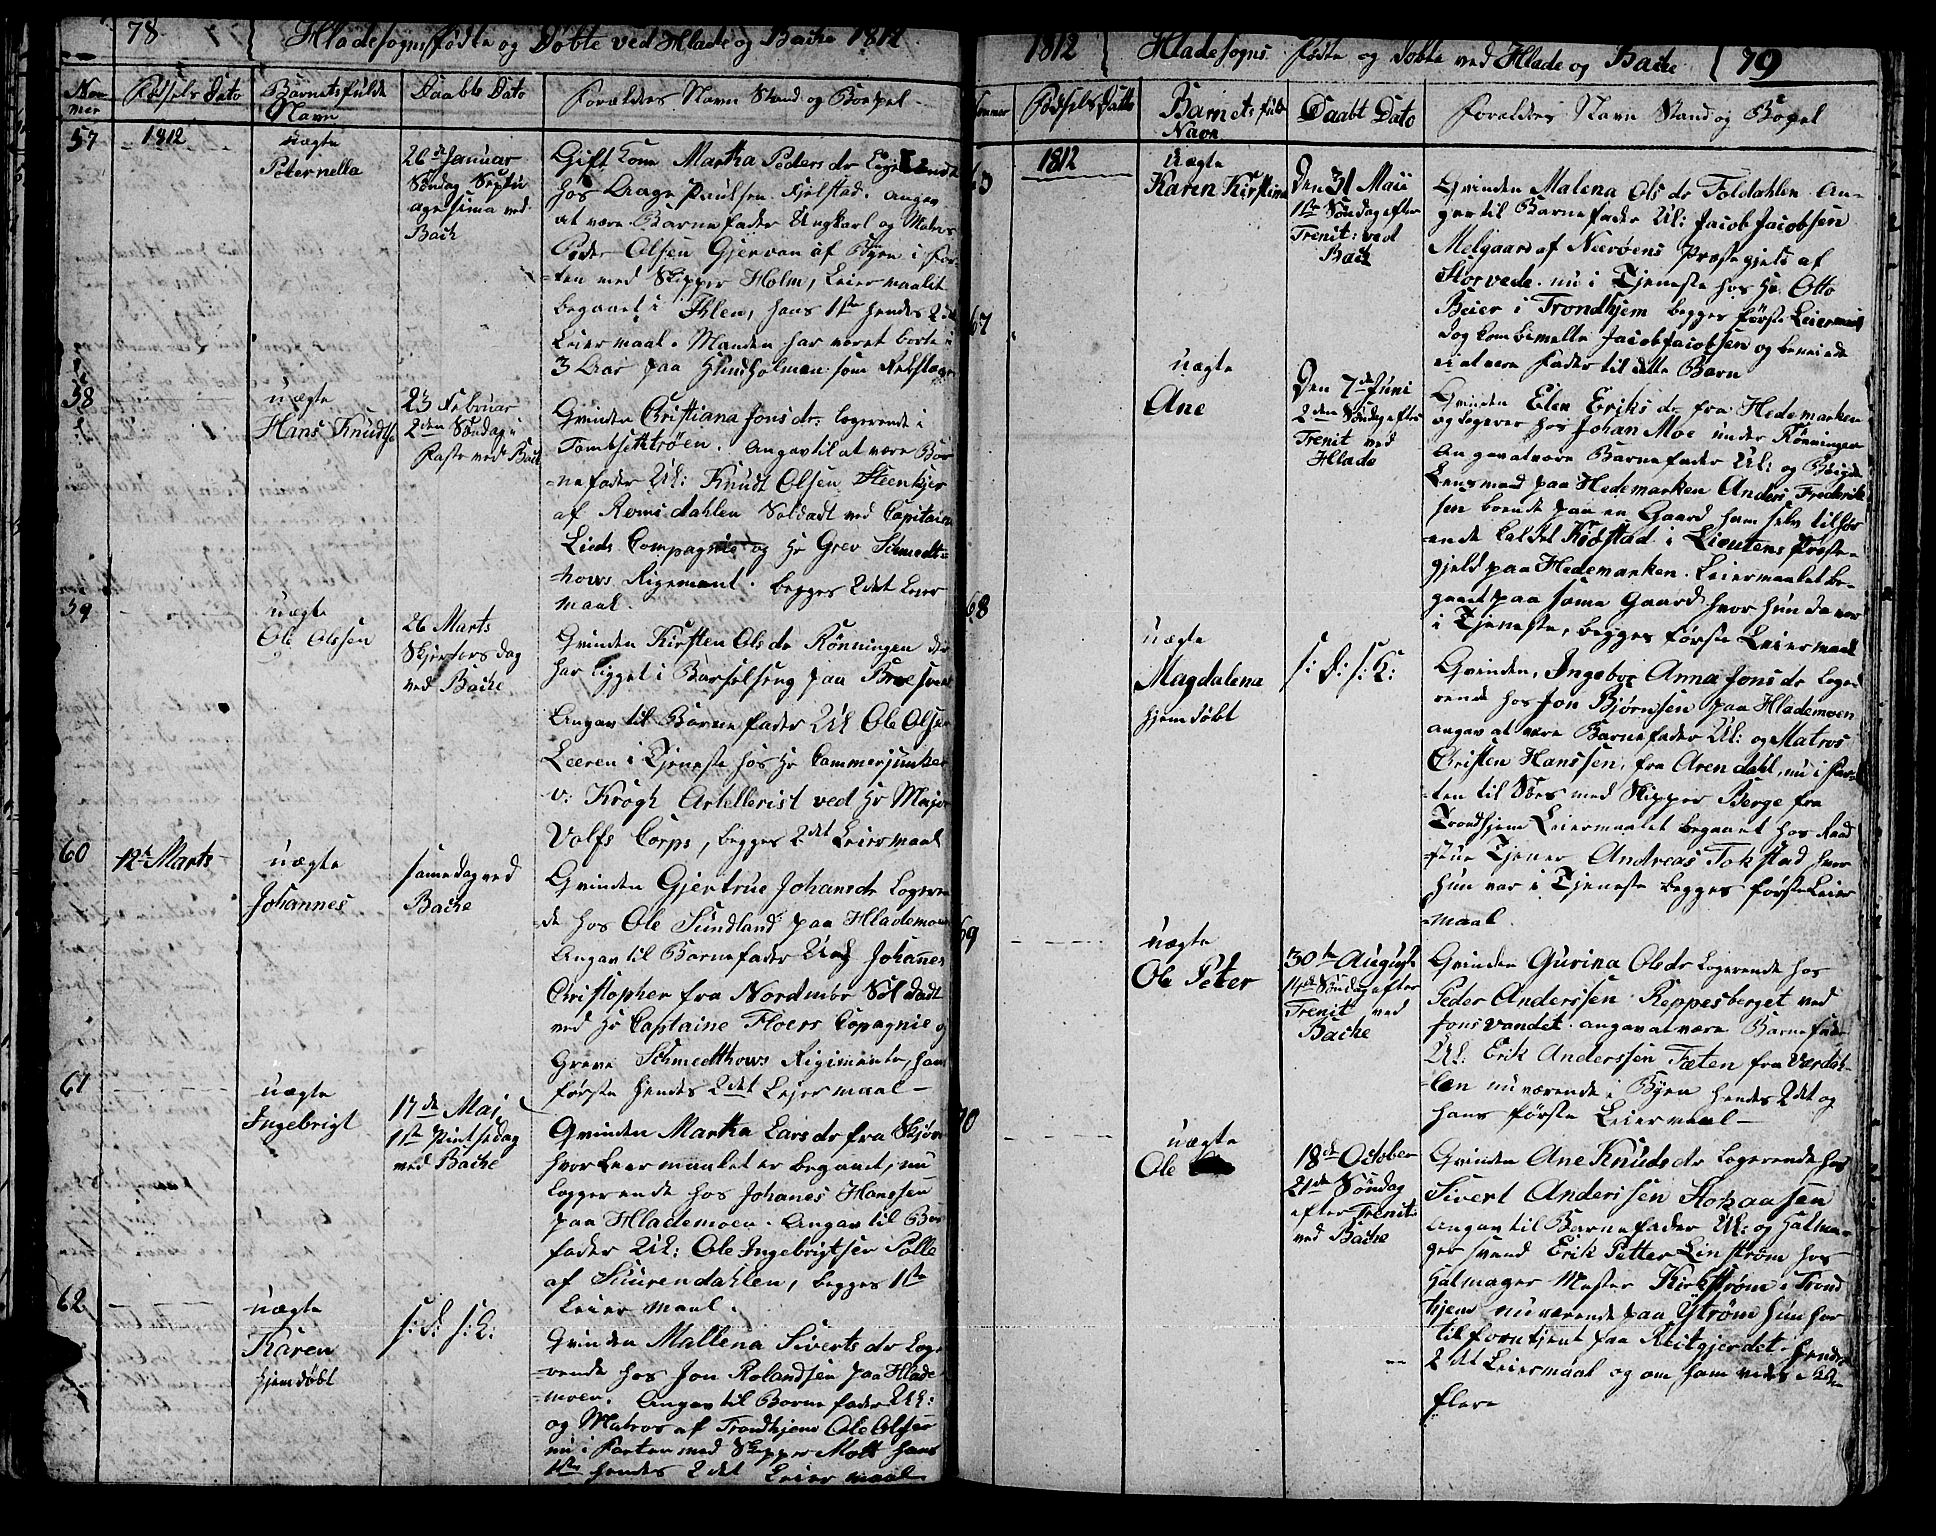 78 Hlade sogns fødte og Døbte ved Hlade og Bache 1812
Nommer Fødsels Dato Barnets fulde Navn Daabts Dato Forældres Navn Stand og Bopæl
57 1812 uægte
Peternella
26de Januar
Søndag Septu
agesima ved
Bach
Gift Kone Martha Peders dr Logerende
hos Aage Paulsen Fjelstad. angav
at være Barnefader Ungkarl og Matros
Peder Olsen Gjervan af Byen i far-
-ten med Skipper Holm, Leiermaalet
begaaet i Ihlen, hans 1ste hendes 2det
Leiermaal. Manden har været borte i
3 Aar paa Holmen som
58 uægte
Hans Knudsen
23 Februar
2den Søndag i
Faste ved Bach
Qvinden Christiana Jonsdr. logerende i
angav til at være Bar
-nefader Uk: Knudt Olsen Steenkjer
af Romsdahlen Soldadt ved Capitain
Lieds Compagnie og Hr Grev Schmedt-
hows Rigement. begges 2det Leier
maal.
59 uægte
Ole Olssen
26 Marts
Skjertorsdag
ved Bache
Qvinden Kirsten Olsdr Rønningen der
har ligget i Barselseng paa
Angav til Barnefader Uk Ole Olsen
Leeren i Tjeneste hos Hr Cammerjunker
v: Krogh Artellerist ved Hr Major
Volfs Corps, begges 2det Leiermaal
60 12te Marts uægte
Johannes
samedag ved
Bache
Qvinden Gjertrue Johansdr Logeren
-de hos Ole Sundland paa Hlademoen
Angav til Barnefader Johannes
Christopher fra Nordmør Soldadt
ved Hr Captaine Floers Copagnie og
Greve Schmedthows Rigimente, hans
første hendes 2det Leiermaal
61 uægte
Ingebrigt
17de Maj
1ste Pintsedag
ved Bache
Qvinden Martha Larsdr fra
hvor Leiermaalet er begaaet, nu
loggerende hos Johanes Hanssen
paa Hlademoen. Angav til Bar
fader Uk: Ole Ingebrigtsen Polle
af Suurendahlen, begges 1ste
Leiermaal.
62 uægte
Karen
hjemdøbt
s: D: s: K:
Qvinden Mallena Siverts dr Loge-
-rende hos Jon Rolandsen paa Hlade-
-moen. Angav til Barnefader Uk:
og Matros af Trondhjem Ole Olsen
nu i Farten med Skipper Molt hans
1ste hendes 2det Leiermaal
1812 Hlade sogns Fødte og Døbte ved Hlade og Bache 79
Nommer Fødsels Datto Barnets fulde Navn Daabt Dato Forældres Navn Stand og Bopel
1812 uægte
Karen Kirstina
Den 31 Maii
1ste Søndag efter
Trenit: ved
Bach
Qvinden Malena Ols dr Foldahlen. An-
gav til Barnefader Uk: Jacob Jacobsen
Melgaard af Nærøens Præstegjeld af
nu i Tjeneste hos Hr Otto
Beier i Trondhjem begges første Leiermaal
dog kom bemelte Jacob Jacobsen og benægtede
ei at være Fader til dette Barn
67 uægte
Ane
Den 7de Juni
2den Søndag efter
Trenit ved
Hlade
Qvinden Elen Eriks dr fra Hedemarken
og logerer hos Johan Moe under Rønningen
Angav at være Barnefader Uk: og Bøigde
Lensmand paa Hedemarken Anders Frederik
sen boende paa en Gaard ham selv tilhør
ende kaldet Kiøstad i Præste-
gjeld paa Hedemarken. Leiermaalet be-
gaaet paa same Gaard hvor hun da var
i Tjeneste, begges første Leiermaal
68 uægte
Magdalena
hjemdøbt
s: D: s: K:
Qvinden, Ingebor Anna Jonsdr Loge
rende hos Jon Bjørnsen paa Hlademoen
angav at være Barnefader Uk: og Matros
Christen Hanssen, fra Arendahl, nu i far-
-ten til Søes med Skipper Berge fra
Trondhjem Leiermaalet begaaet hos Raad
stue Tjener Andreas Tokstad hvor
hun var i Tjeneste begges første Leier
-maal.
69 uægte
Ole Peter
30te August
14de Søndag efter
Trenit ved
Bache
Qvinden Gurina Olsdr Logerende hos
Peder Anderssen Reppesberget ved
Jonsvandet. angav at være Barnefader
Uk: Erik Anderssen Fæten fra Værdah-
len nuværende i Byen hendes 2det og
hans første Leiermaal
70 uægte
Ole
18de October
21de Søndag
efter Trenit:
ved Bache
Qvinden Ane Knudsdr logerende hos
Sivert Anderssen Stokaasen
Angav til Barnefader Uk: og Hatma-
ger svend Erik Petter Linstrøm hos
Hatmager Mester Kirkstrøm i Trond
hjem nuværende paa Ystrøm hun har
tilforn tjent paa Reitgjerdet. hendes
2det Leiermaal og om ham vides ikke
flere